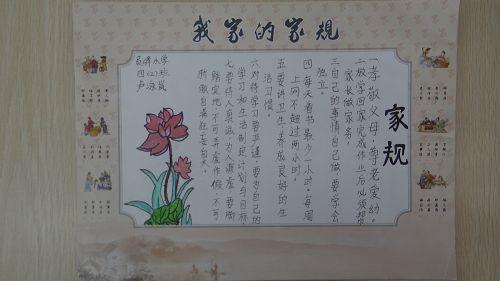 我家的家规
吴牌小学
四(2)班
卢泳岚
家规
一孝敬父母,尊老爱幼。
二放学回家完成作业后必须帮
家长做家务。
三自己的事情自己做要学会
独立。
四每天看书最少一小时。每周
上网不超过两小时。
五要讲卫生养成良好的生
活习惯。
六对待学习要严谨,要为自己的
学习和生活制定计划与目标。
七要待人真诚为人谦虚要脚
踏实地不可弄虚作假不可
骄傲自满狂妄自大。